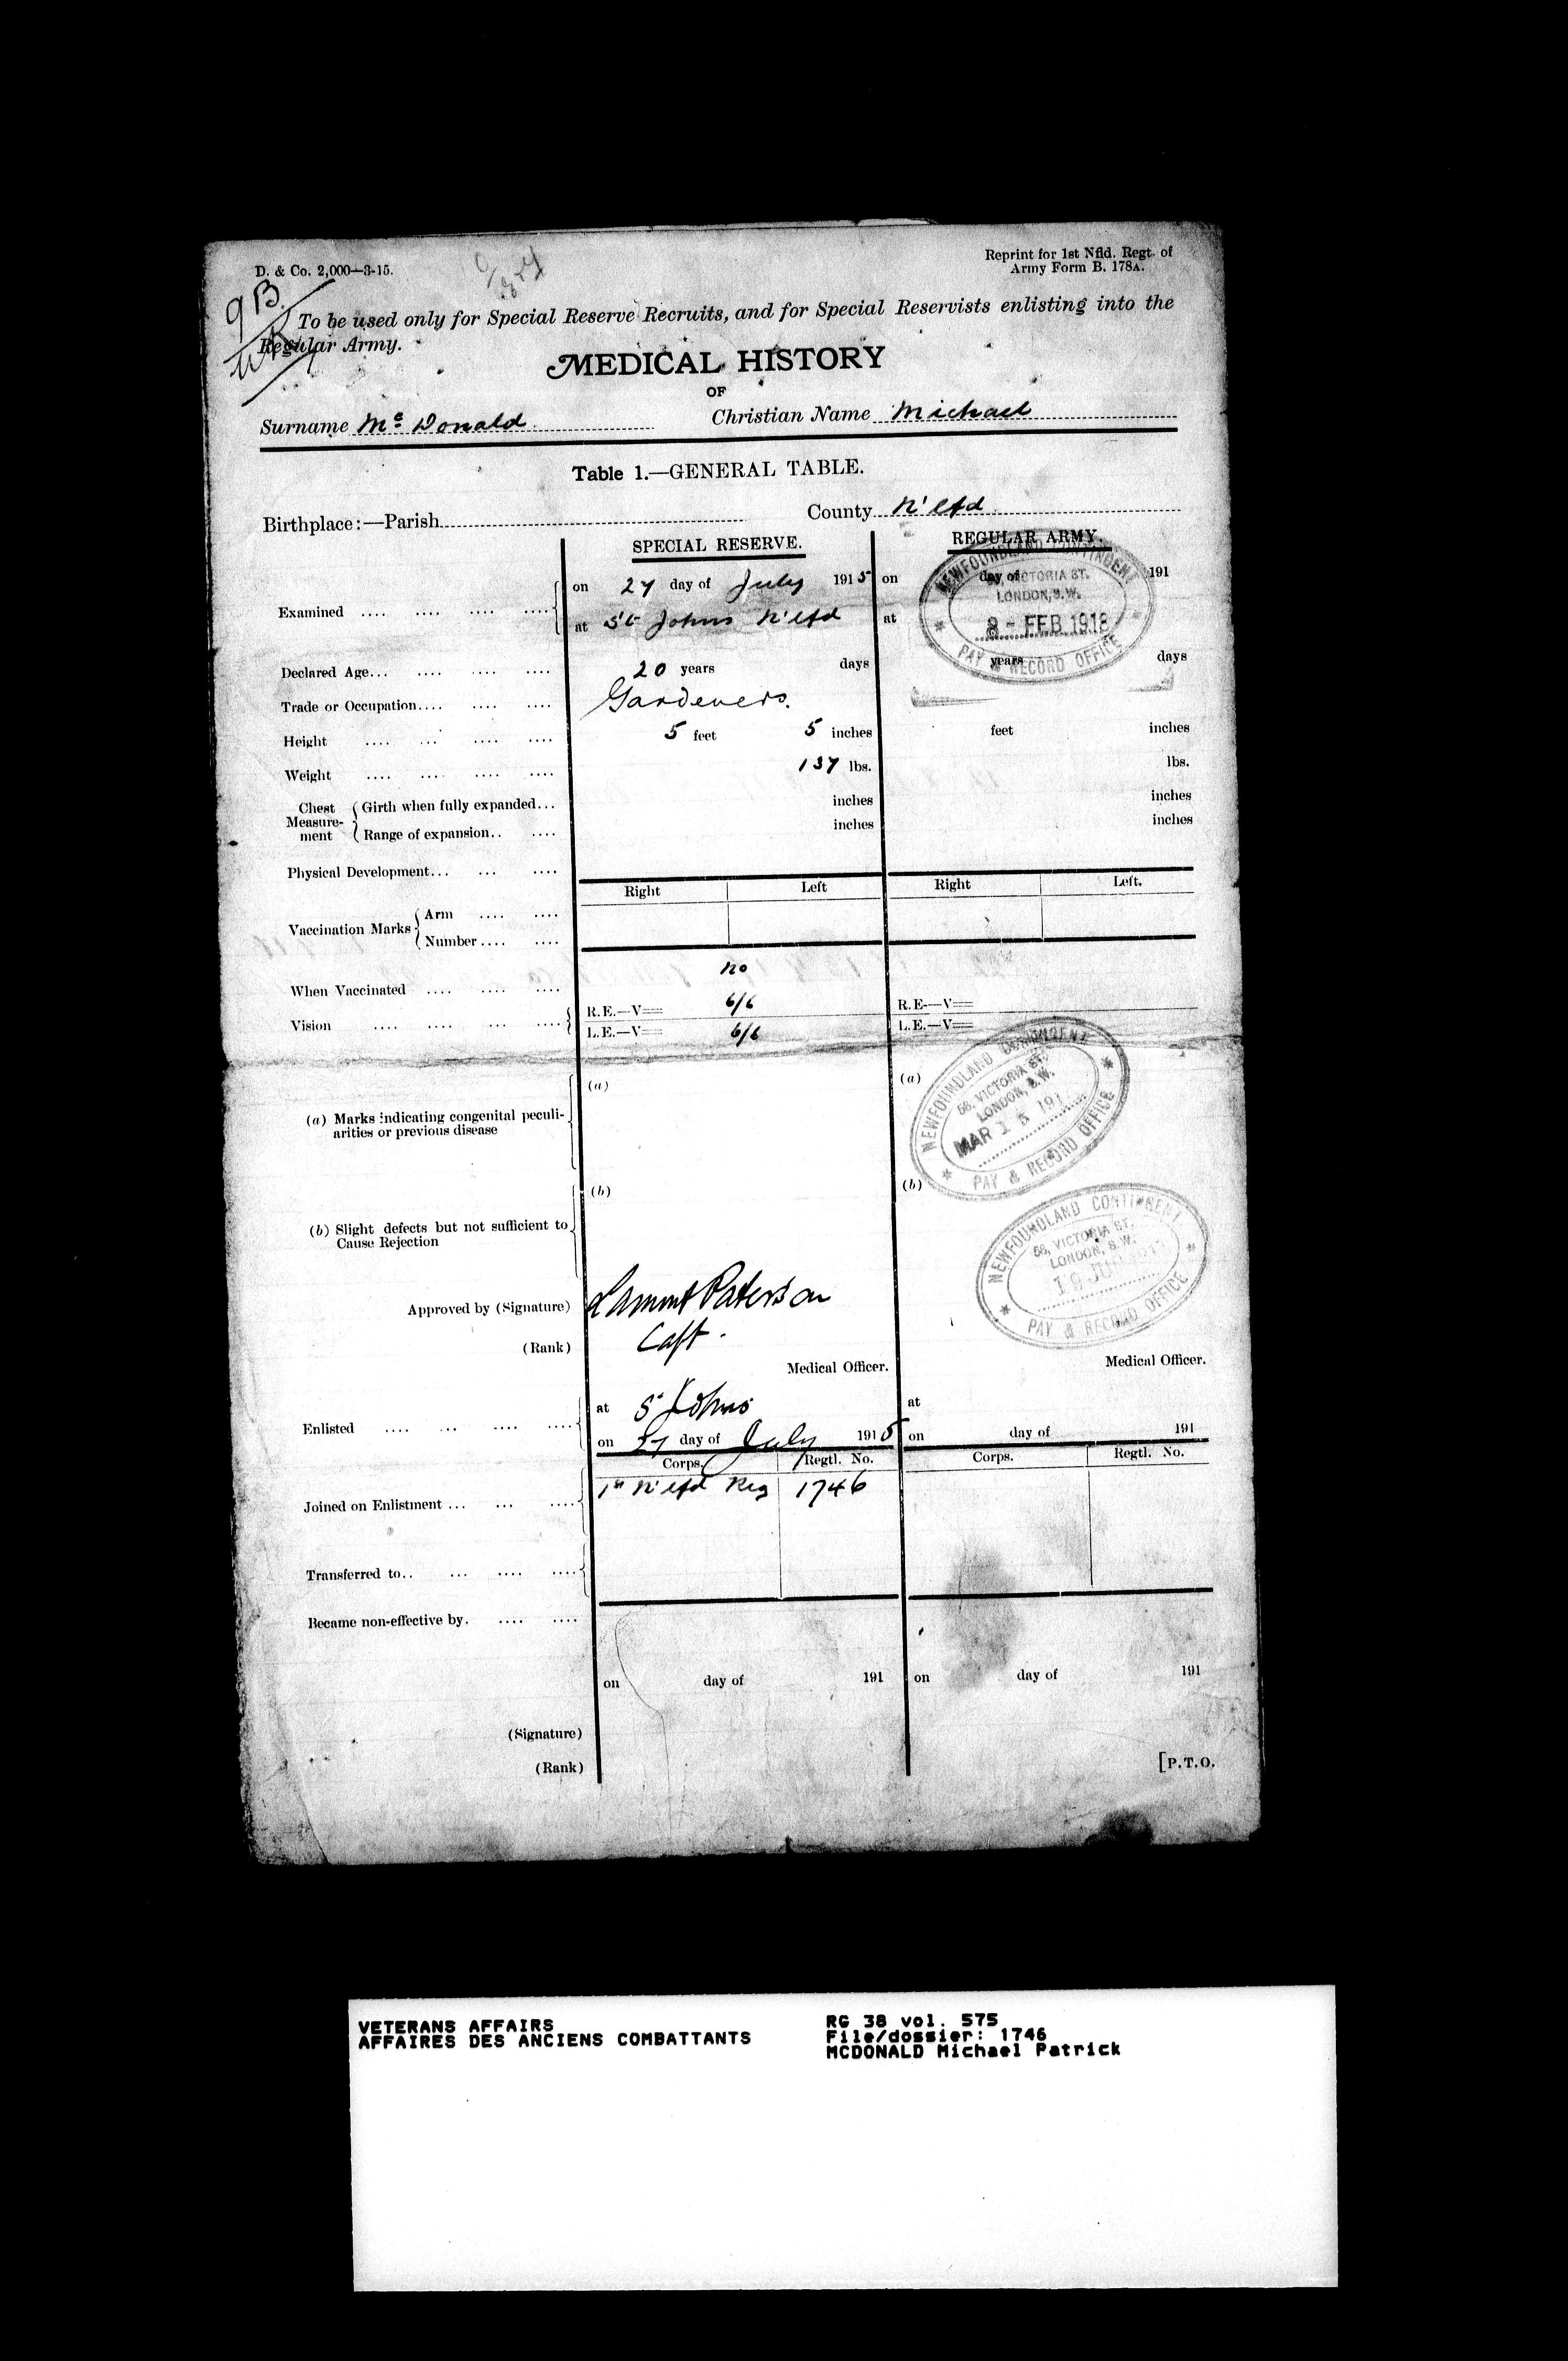 D. & Co. 2,000—3-15.
Reprint for 1st Nfld. Regt. of
Army Form B. 178A.
9B
To be used only for Special Reserve Recruits, and for Special Reservists enlisting into the
Regular Army.
MEDICAL HISTORY
OF
Surname Mc Donald Christian Name Michael
Table 1.—GENERAL TABLE.
Birthplace:—Parish County N'fld
SPECIAL RESERVE. REGULAR ARMY.
Examined .... .... .... .... on 27 day of July 1915 on day of 191
at St Johns N'fld at
NEWFOUNDLAND CONTINGENT
VICTORIA ST.
LONDON, S.W.
8 - FEB 1918
PAY & RECORD OFFICE
Declared Age... .... .... .... 20 years days years days
Trade or Occupation.... .... .... Gardeners.
Height .... ... .... .... 5 feet 5 inches feet inches
Weight .... ... .... .... 137 lbs. lbs.
Chest Measure-ment Girth when fully expanded... inches inches
Range of expansion.. .... inches inches
Physical Development... ... ....
Right Left Right Left.
Vaccination Marks Arm .... ....
Number .... ....
When Vaccinated .... .... .... no
Vision .... .... ... .... R.E.—V= 6/6 R.E.—V=
L.E.—V= 6/6 L.E.—V=
(a) Marks indicating congenital peculi-
arities or previous disease
(a) (a)
NEWFOUNDLAND CONTINGENT
58, VICTORIA ST.
LONDON, S.W.
MAR 15 191
PAY & RECORD OFFICE
(b) Slight defects but not sufficient to
Cause Rejection
(b) (b)
NEWFOUNDLAND CONTINGENT
58, VICTORIA ST.
LONDON, S.W.
PAY & RECORD OFFICE
Approved by (Signature) Lamont Paterson
(Rank) Capt.
Medical Officer. Medical Officer.
Enlisted .... ... .... .... at St Johns at
on 27 day of July 1915 on day of 191
Corps. Regtl. No. Corps. Regtl. No.
Joined on Enlistment ... ... .... 1st N'fld Reg 1746
Transferred to.. ... .... ....
Became non-effective by. .... ....
on day of 191 on day of 191
(Signature)
(Rank)
[P.T.O.
VETERANS AFFAIRS
AFFAIRES DES ANCIENS COMBATTANTS
RG 38 vol. 575
File/dossier: 1746
MCDONALD Michael Patrick